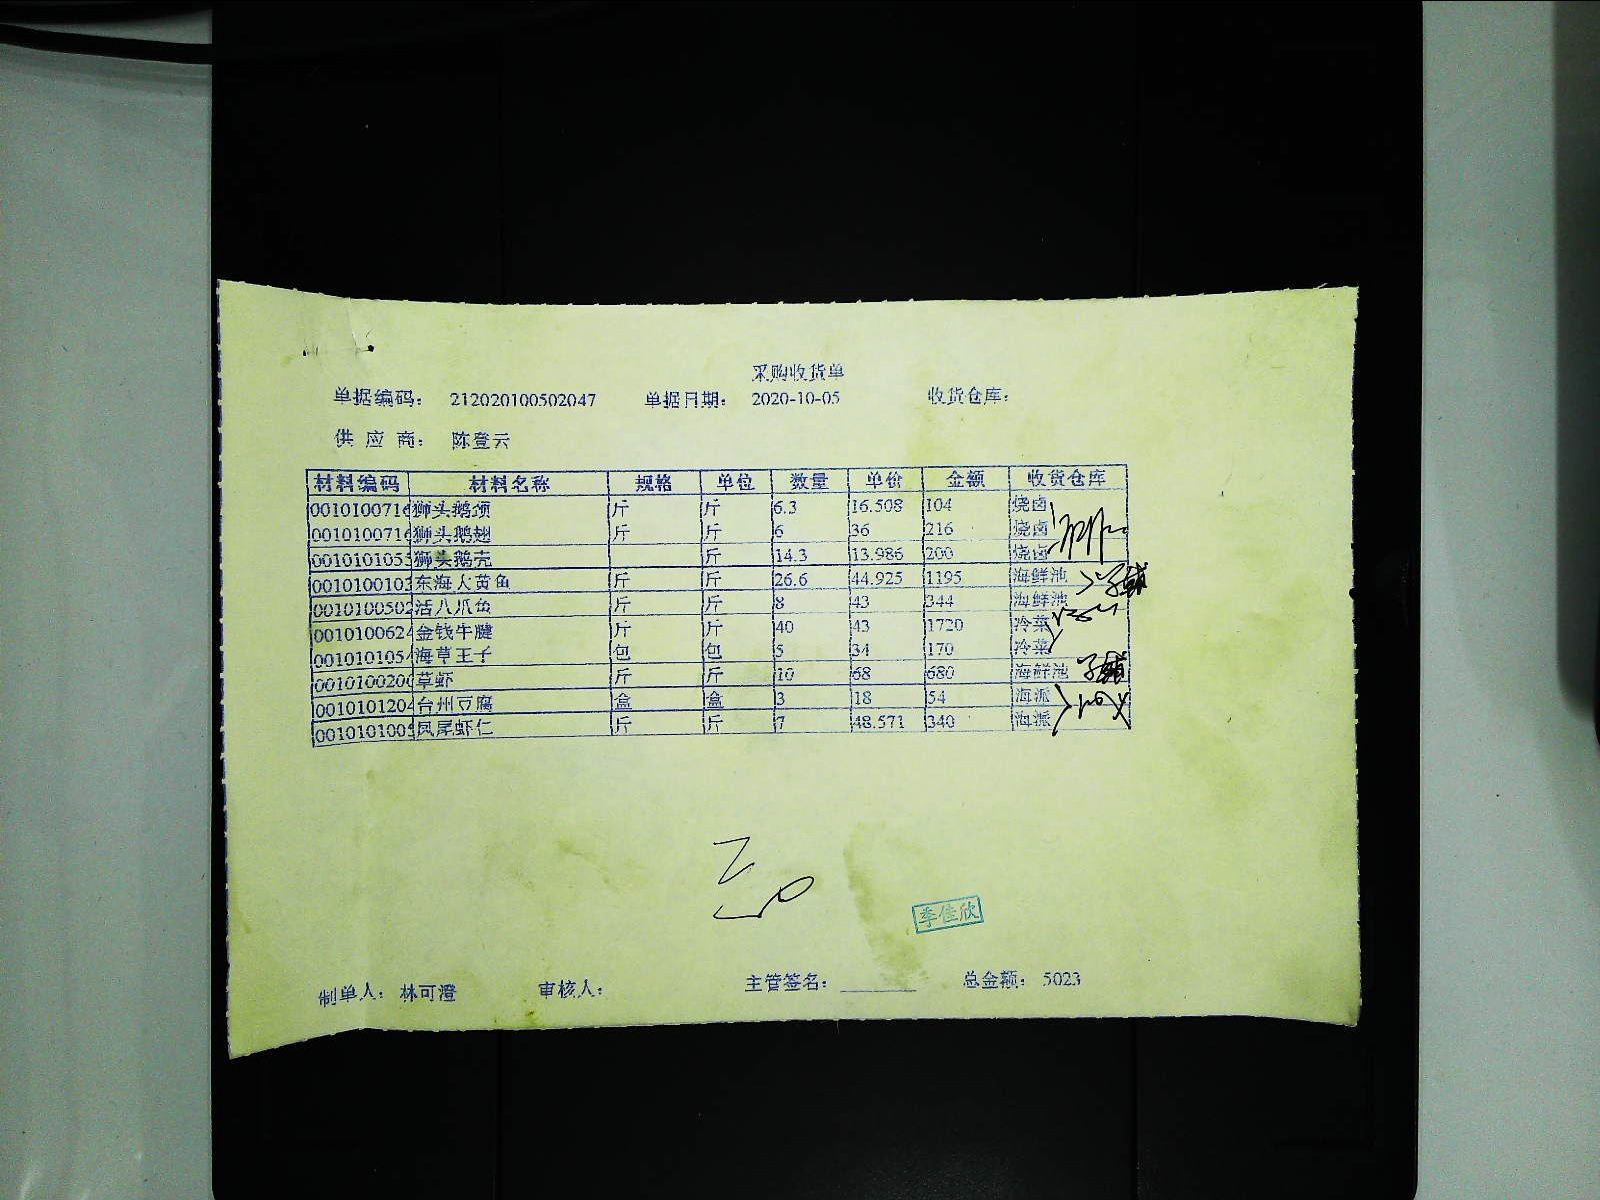 采购收货单
单据编码： 212020100502047 单据日期： 2020-10-05 收货仓库：
供 应 商： 陈登云
材料编码 材料名称 规格 单位 数量 单价 金额 收货仓库
0010100716 狮头鹅颈 斤 斤 6.3 16.508 104 烧卤
0010100716 狮头鹅翅 斤 斤 6 36 216 烧卤
0010101055 狮头鹅壳 斤 14.3 13.986 200 烧卤
0010100103 东海大黄鱼 斤 斤 26.6 44.925 1195 海鲜池
0010100502 活八爪鱼 斤 斤 8 43 344 海鲜池
0010100624 金钱牛腱 斤 斤 40 43 1720 冷菜
001010105 海草王子 包 包 5 34 170 冷菜
001010020 草虾 斤 斤 10 68 680 海鲜池
0010101204 台州豆腐 盒 盒 3 18 54 海派
001010100 凤尾虾仁 斤 斤 7 48.571 340 海派
李佳欣
制单人： 林可澄 审核人： 主管签名： 总金额： 5023